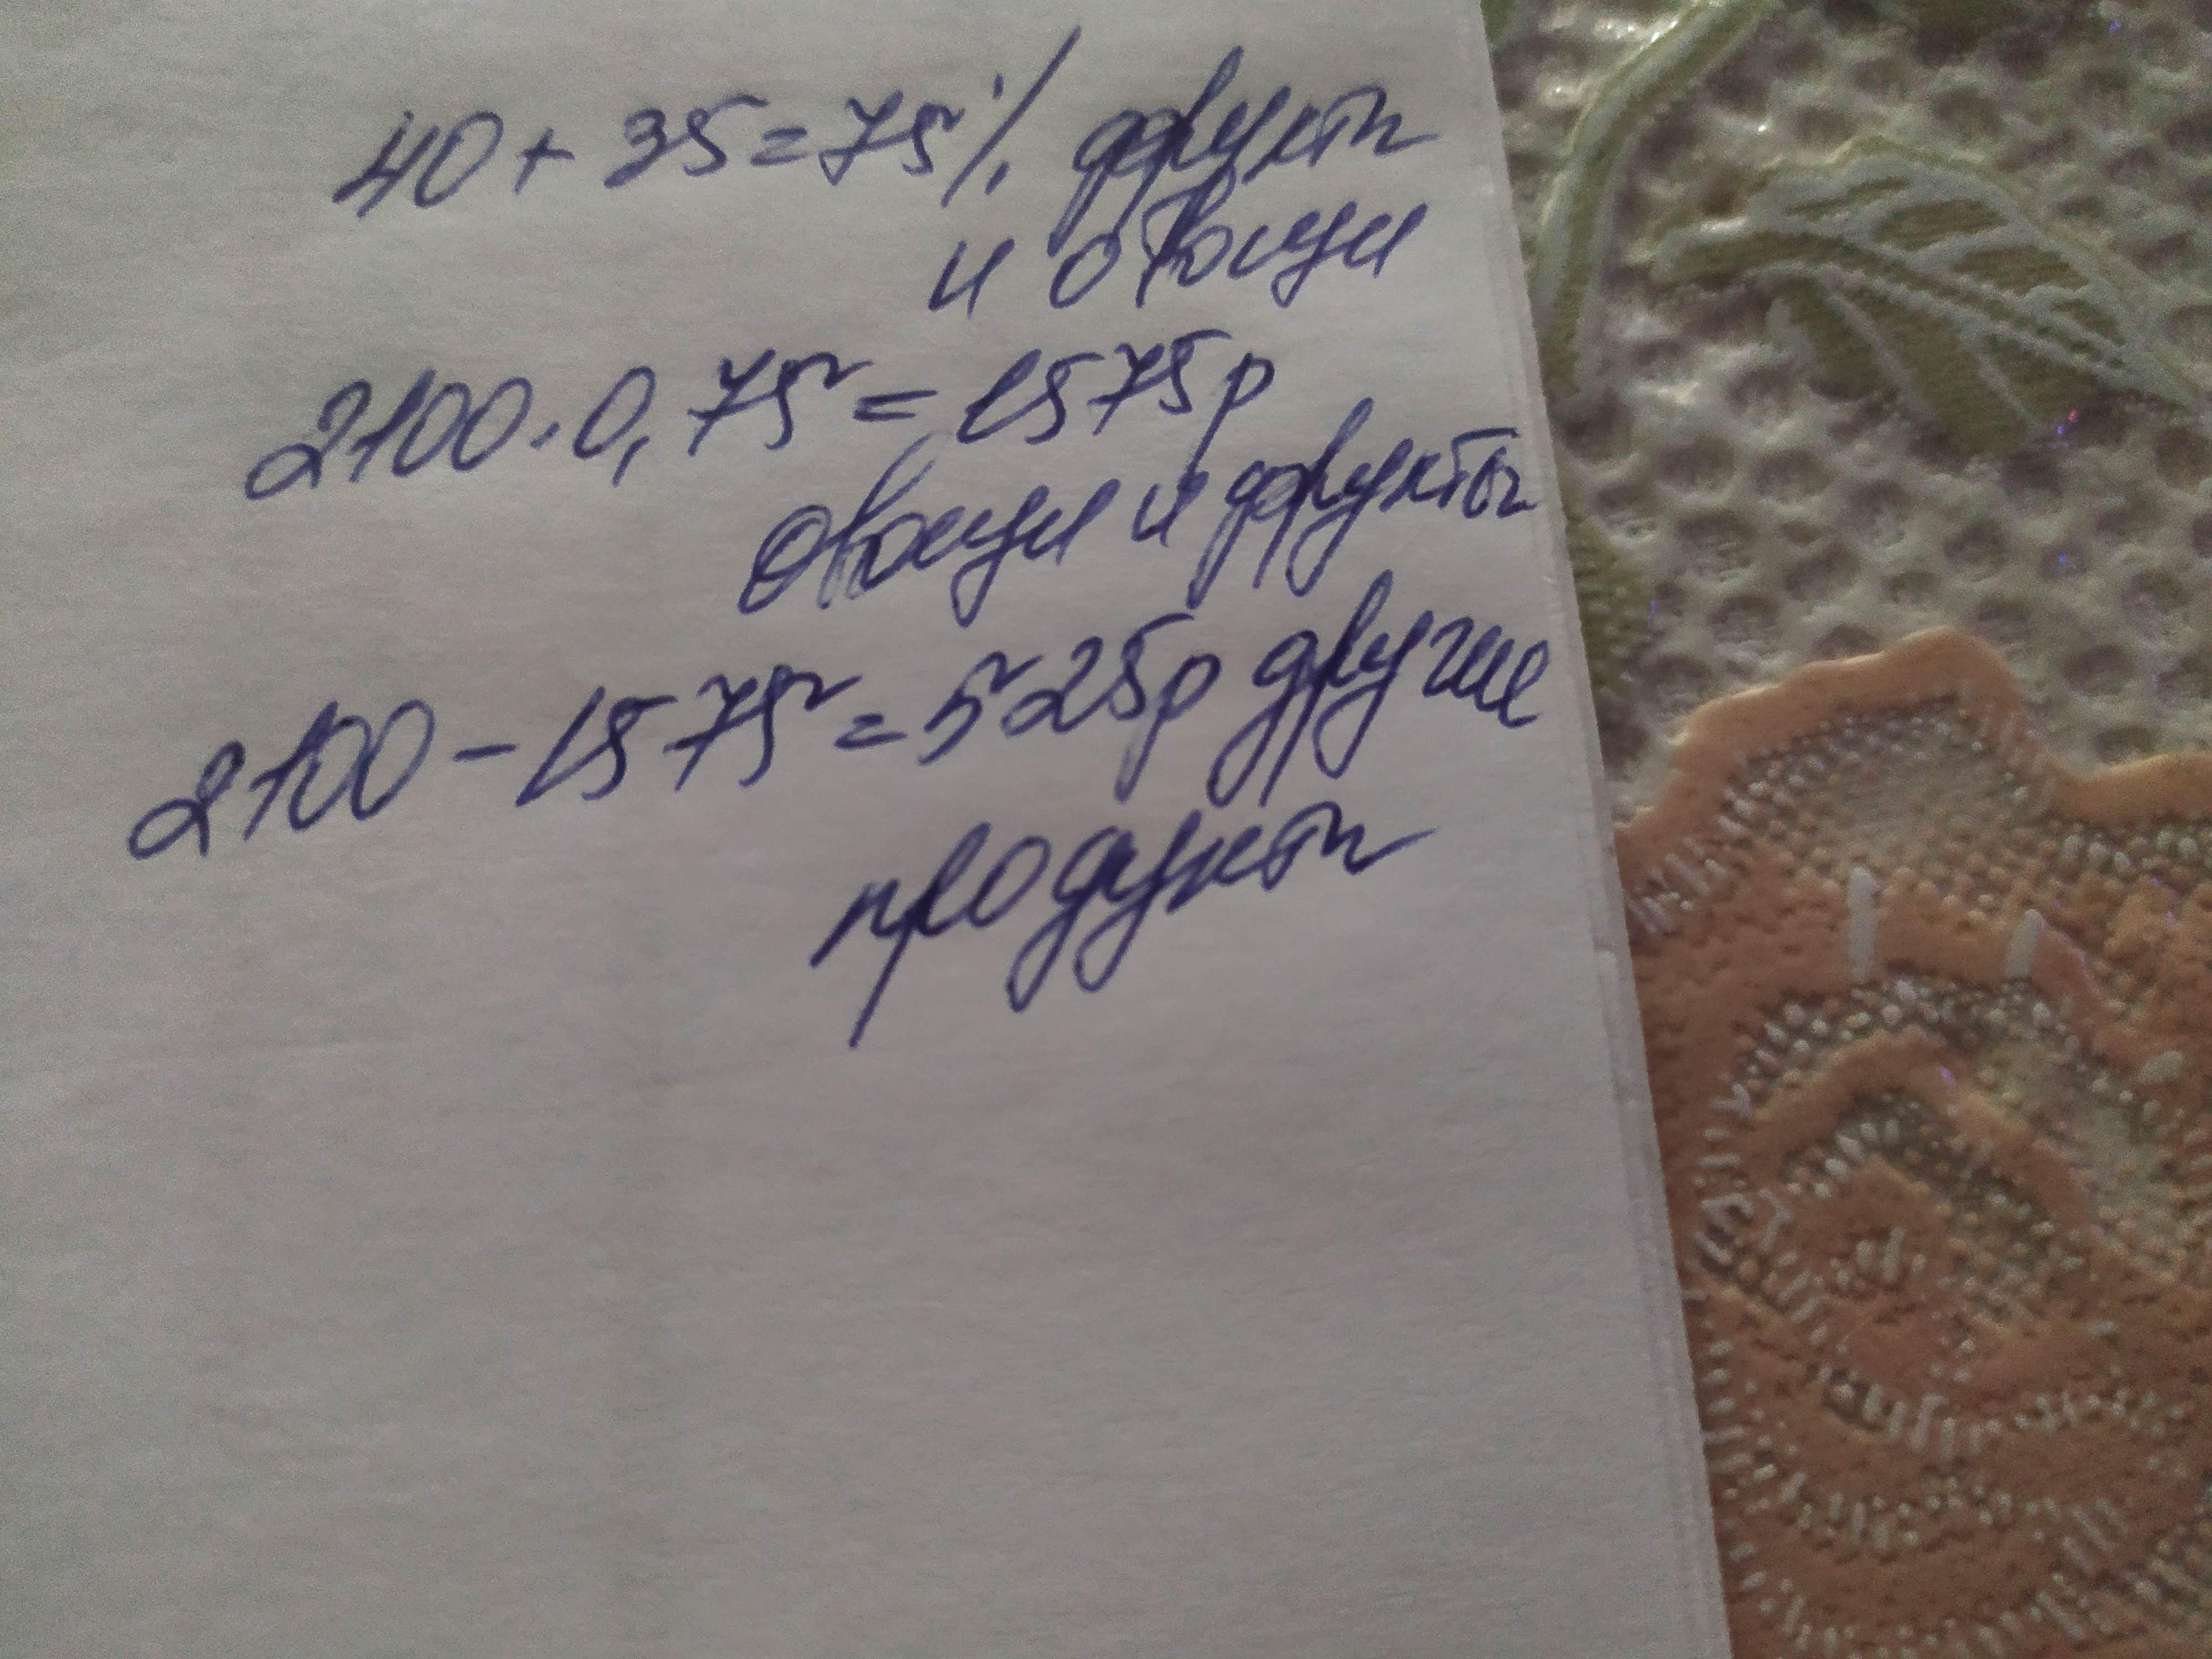 40 + 35 = 75% фрукты
и овощи
2100 · 0,75 = 1575р
овощи и фрукты
2100 - 1575 = 525р другие
продукты